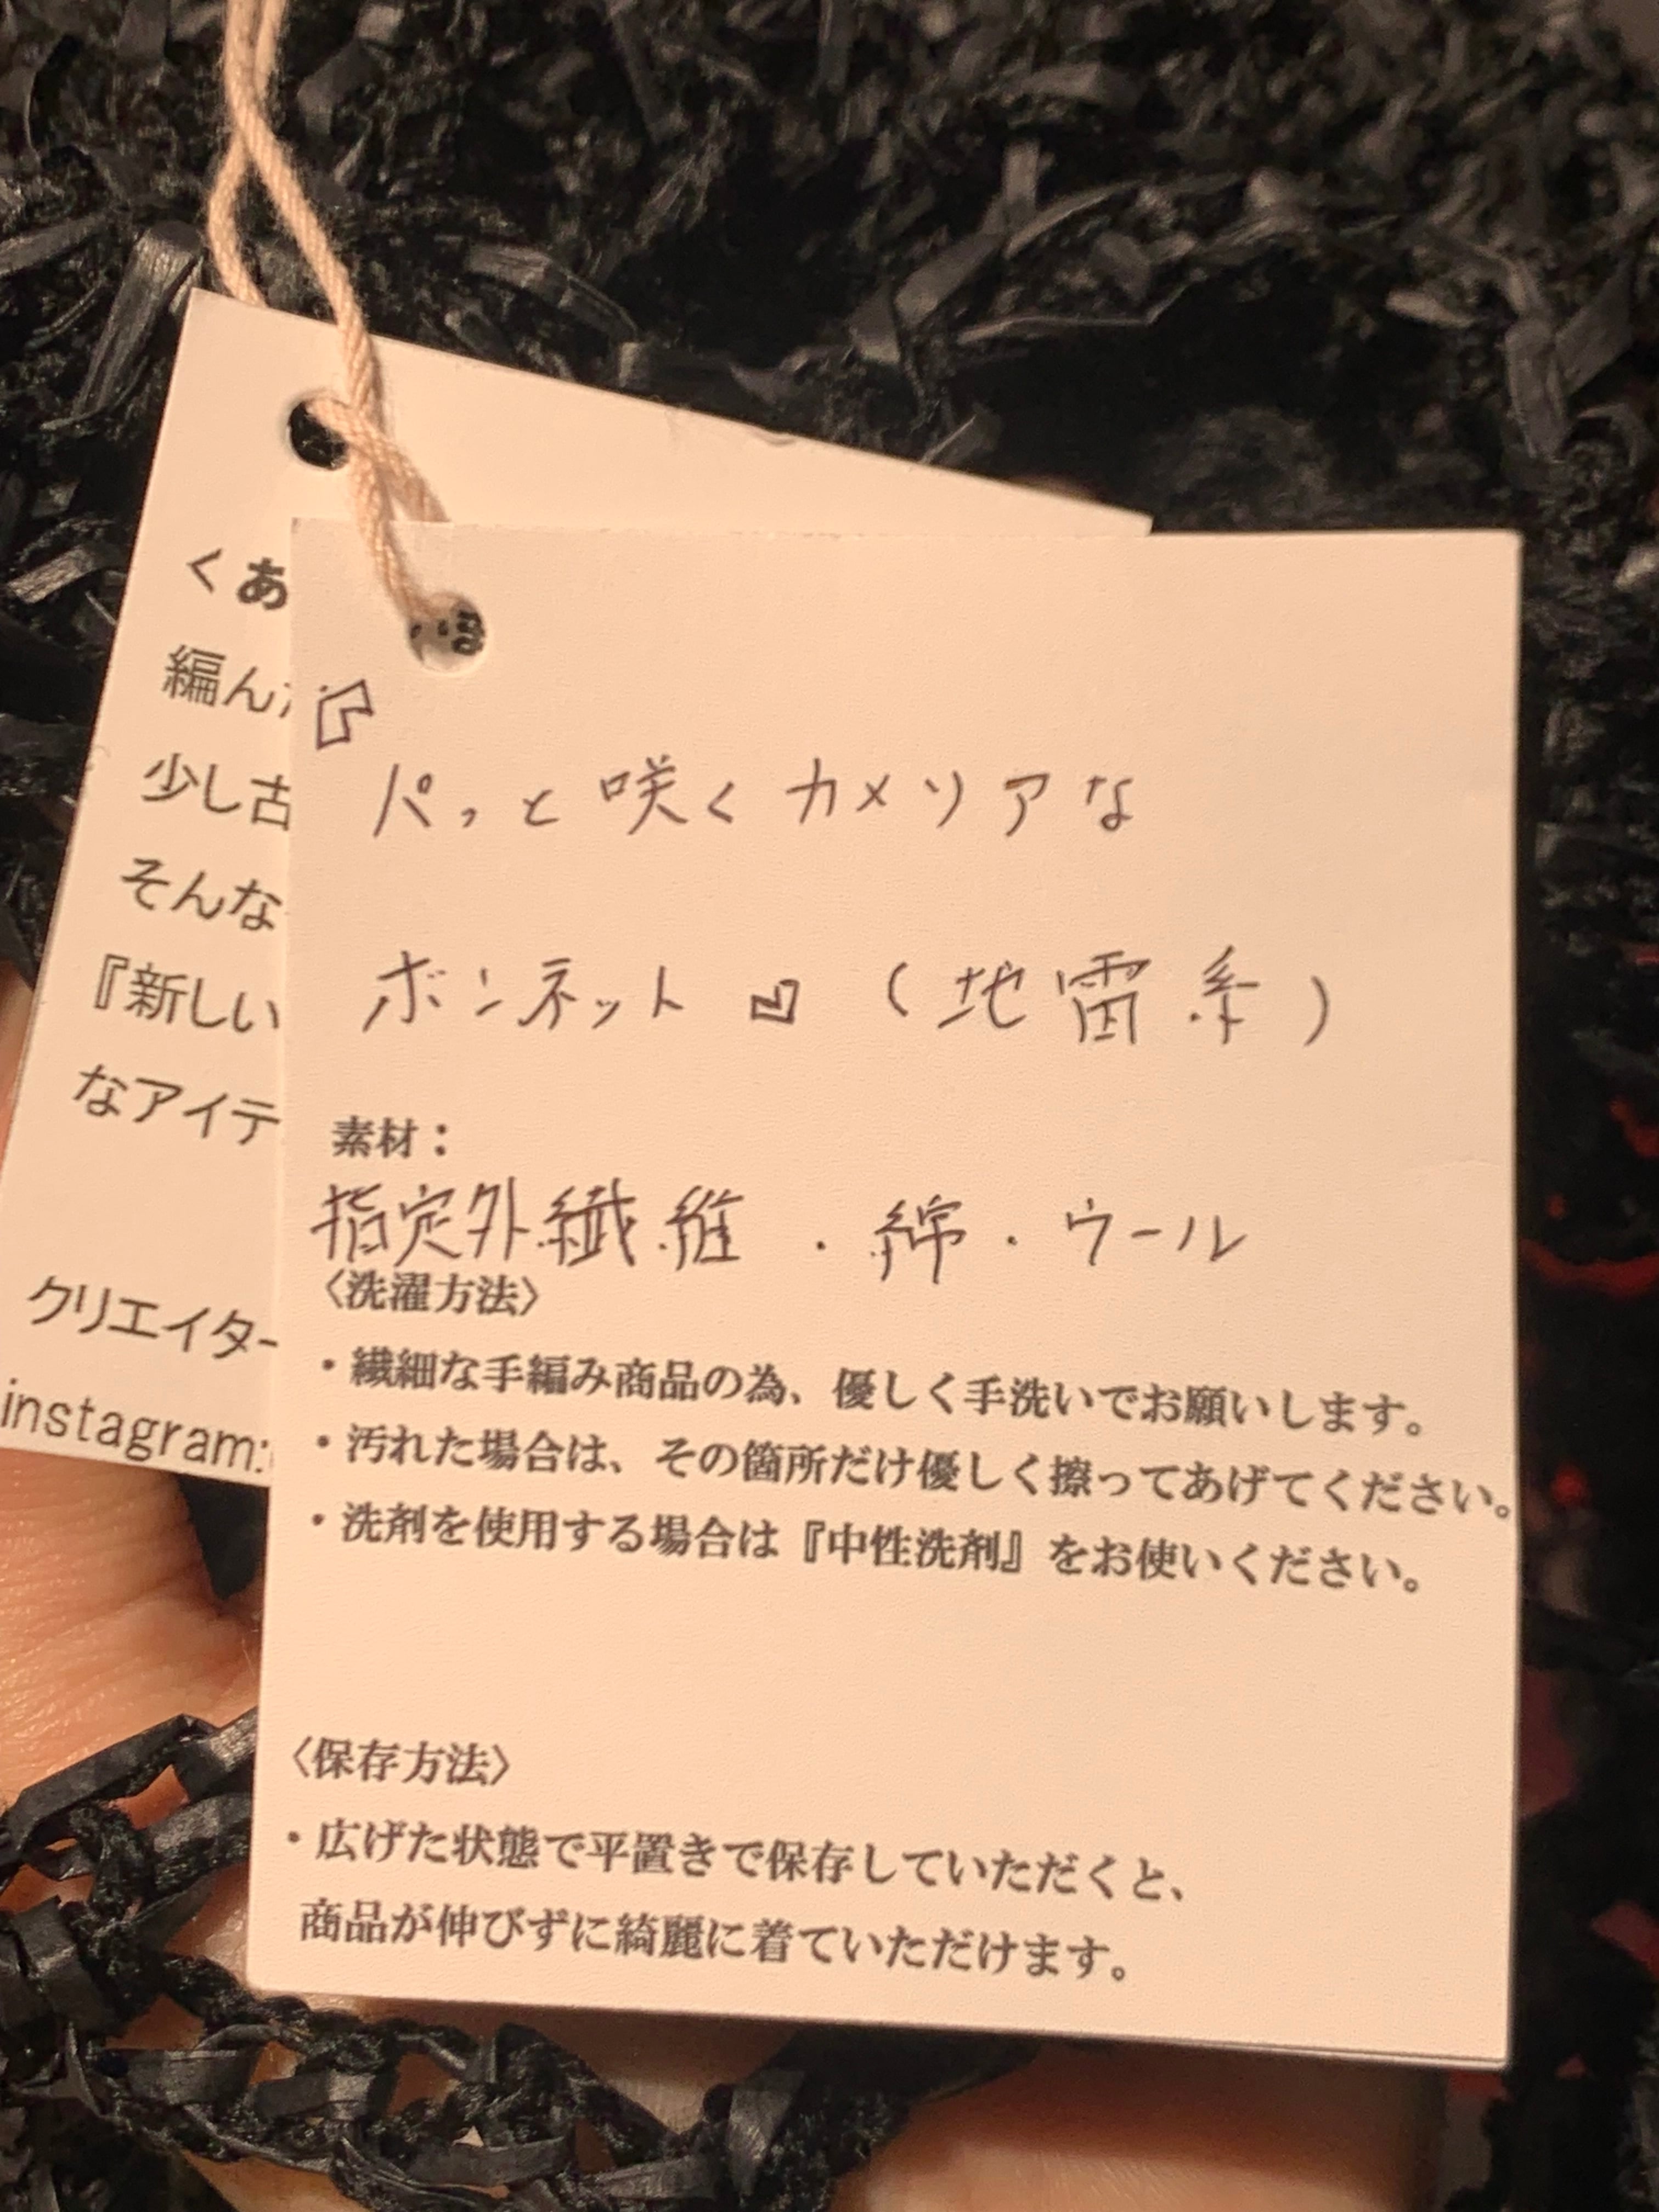 くあ
編んだ
少し古
そんな
『新しい
なアイテ
クリエイター
instagram:
『
パッと咲くカメリアな
ボンネット』(地雷系)
素材：
指定外繊維・綿・ウール
〈洗濯方法〉
・繊細な手編み商品の為、優しく手洗いでお願いします。
・汚れた場合は、その箇所だけ優しく擦ってあげてください。
・洗剤を使用する場合は『中性洗剤』をお使いください。
〈保存方法〉
・広げた状態で平置きで保存していただくと、
商品が伸びずに綺麗に着ていただけます。